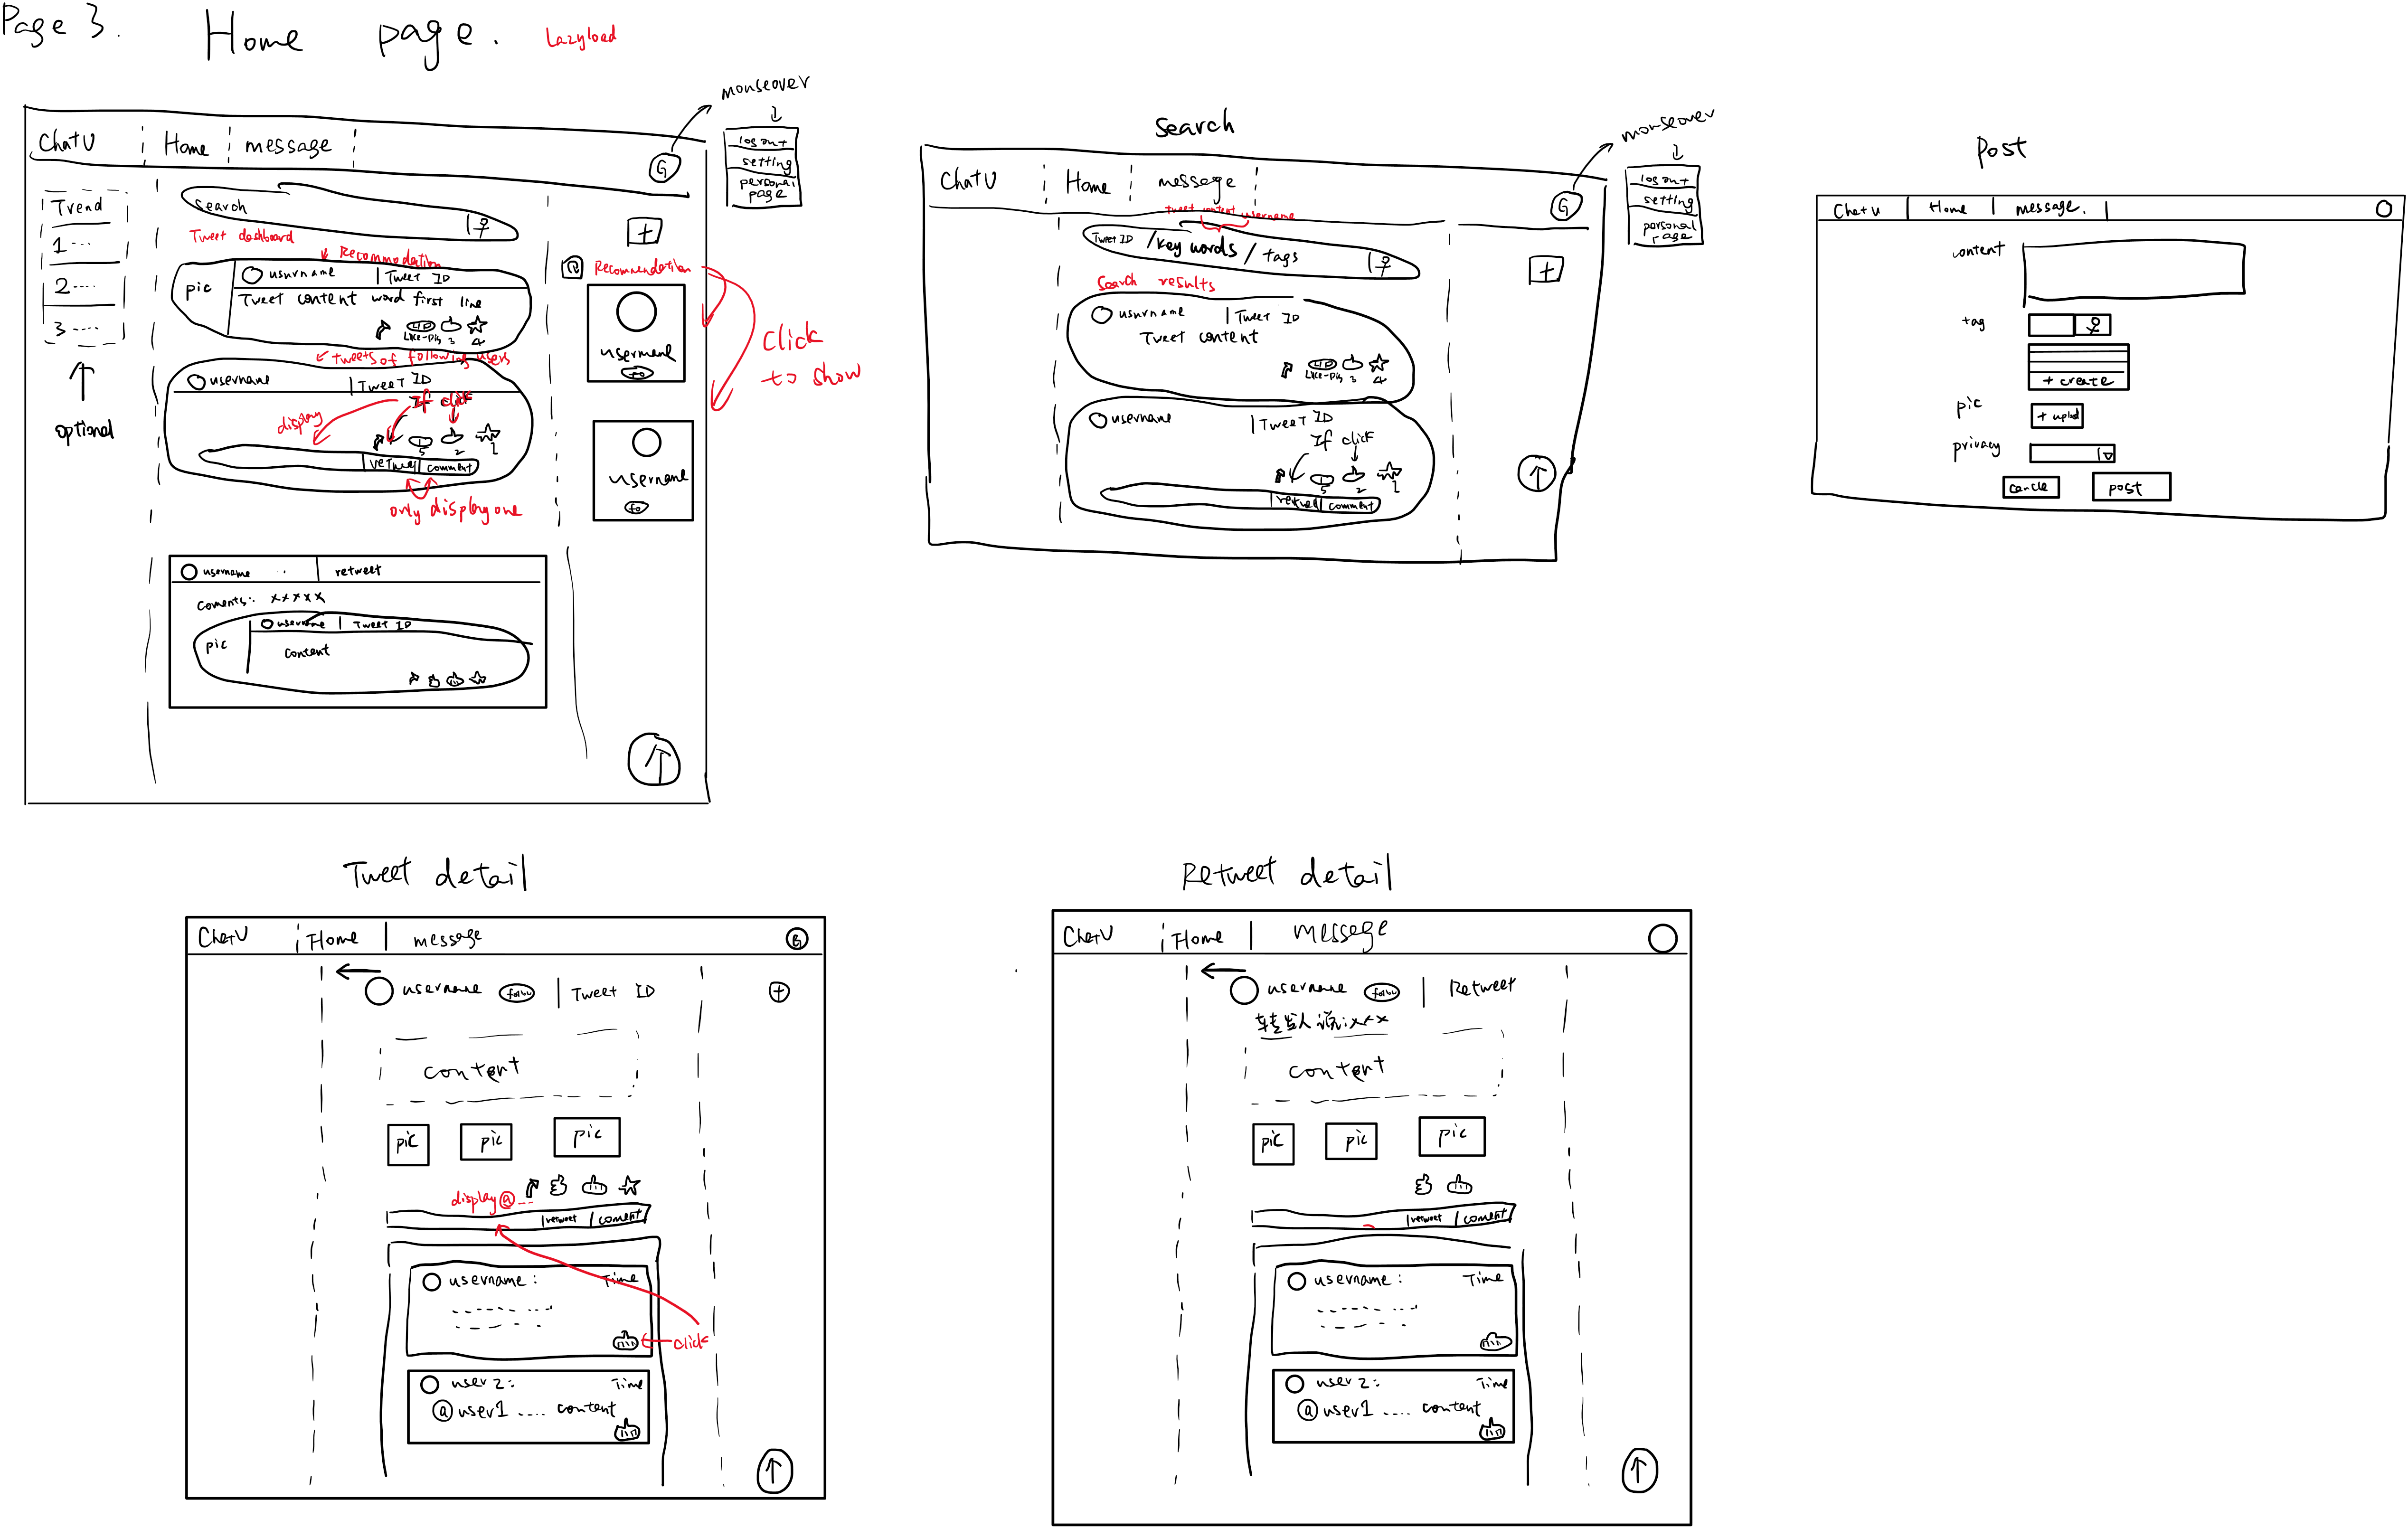 Page 3.
Home page.
Lazyload
mouseover
log out
setting
personal page
ChatU
Home
message
G
Trend
1
2
3
optional
search
Tweet dashboard
Recommodation
pic
usurname
Tweet ID
Tweet content word first line
Like-Dis
3
4
tweets of following users
username
Tweet ID
If click
display
5
2
1
retweet
comment
only display one
username
retweet
coments: xxxxx
pic
username
Tweet ID
content
+
R
Recommendation
username
fo
username
fo
Click
to show
search
mouseover
log out
setting
personal page
ChatU
Home
message
G
tweet content
username
Tweet ID / key words / tags
+
search results
usurname
Tweet ID
Tweet content
Like-Dis
3
4
username
Tweet ID
If click
5
2
1
retweet
comment
Post
ChatU
Home
message.
content
tag
+ create
pic
+ upload
privacy
cancle
post
Tweet detail
ChatU
Home
message
G
username
follow
Tweet ID
+
content
pic
pic
pic
display@...
retweet
coment
username:
Time
click
user 2:
Time
@user1 .... content
Retweet detail
ChatU
Home
message
username
follow
Retweet
转发人说:xxx
content
pic
pic
pic
retweet
coment
username:
Time
user 2:
Time
@user1 .... content